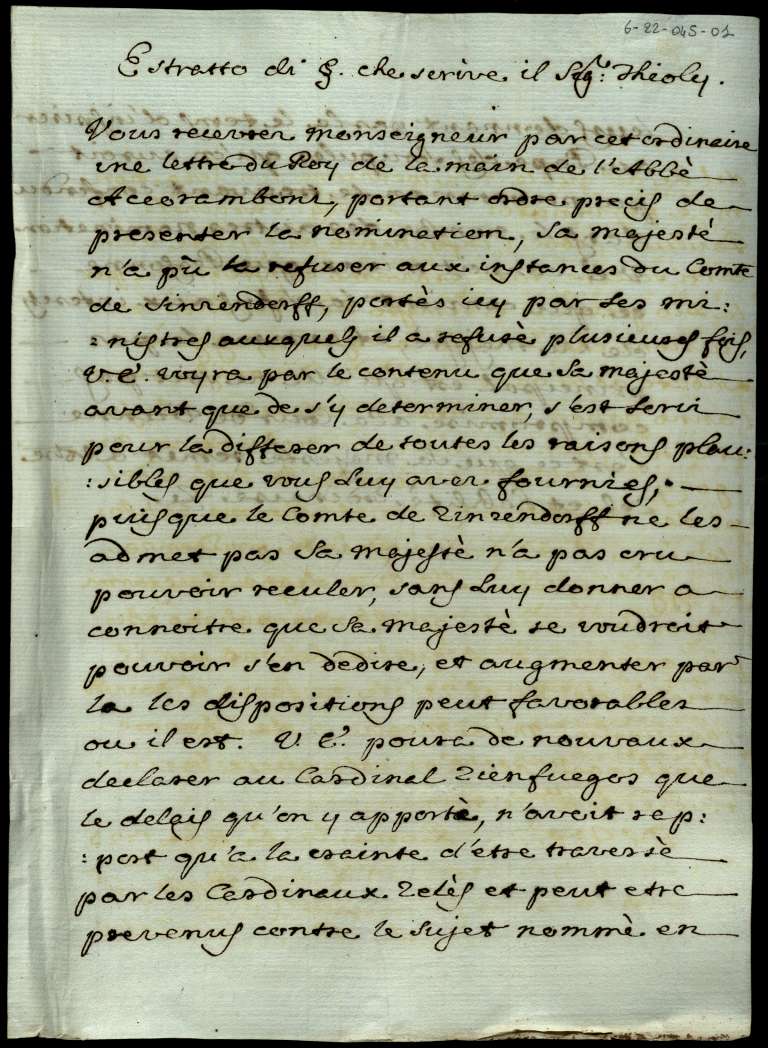 6-22-045-01
Estratto di §. che scrive il Sig.: Thioly.
Vous recevrez monseigneur par cet ordinaire
une lettre du Roy de la main de l'Abbè
Accoramboni, portant ordre precis de
presenter la nomination, Sa majestè
n'a pû la refuser aux instances du Comte
de Sinzendorff, portès icy par ses mi:
:nistres auxquels il a refusè plusieurs fois,
V. E. voyra par le contenu que Sa majestè
avant que de s'y determiner, s'est servi
pour la differer de toutes les raisons plau:
:sibles que vous Luy avez fournies,
puisque le Comte de Zinzendorff ne les
admet pas Sa majestè n'a pas cru
pouvoir reculer, sans Luy donner a
connoitre que Sa majestè se voudroit
pouvoir s'en dedire, et augmenter par
la les dispositions peut favorables
ou il est. V. E. poura de nouvaux
declarer au Cardinal Zienfuegos que
le delais qu'on y apportè, n'avoit rap:
:port qu'a la crainte d'etre traversè
par les Cardinaux Zelès et peut etre
prevenus contre le sujet nommè en